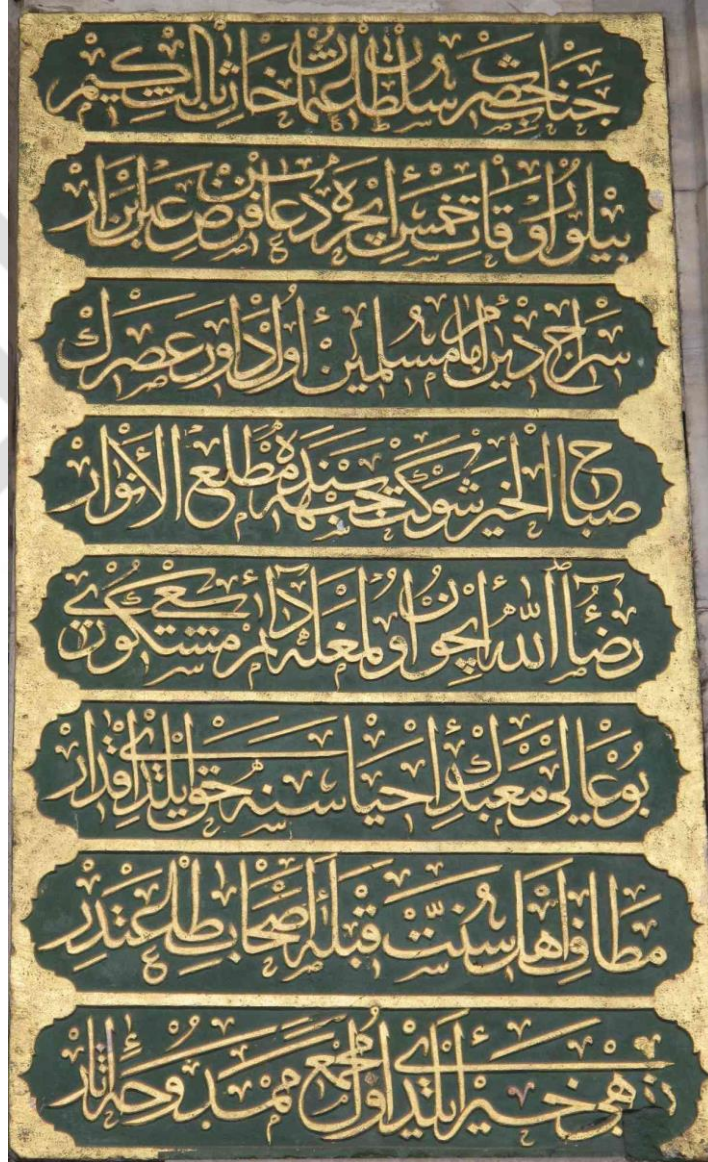 جناب حضرت سلطان عثمان خان ثالث كيم
بيلور اوقات خمس ايچره دعاسن فرض عين ابرار
سراج دين امام مسلمين اول داور عصرك
صباح الخير شوكت جبهه سنده مطلع الانوار
رضاء الله ايچون اولمغله دائم سعى مشكورى
بو عالى معبدك احياسنه حق ايلدى اقدار
مطاف اهل سنت قبلهٔ اصحاب طاعتدر
زهى خير ايلدى اول مجمع ممدوحه آثار